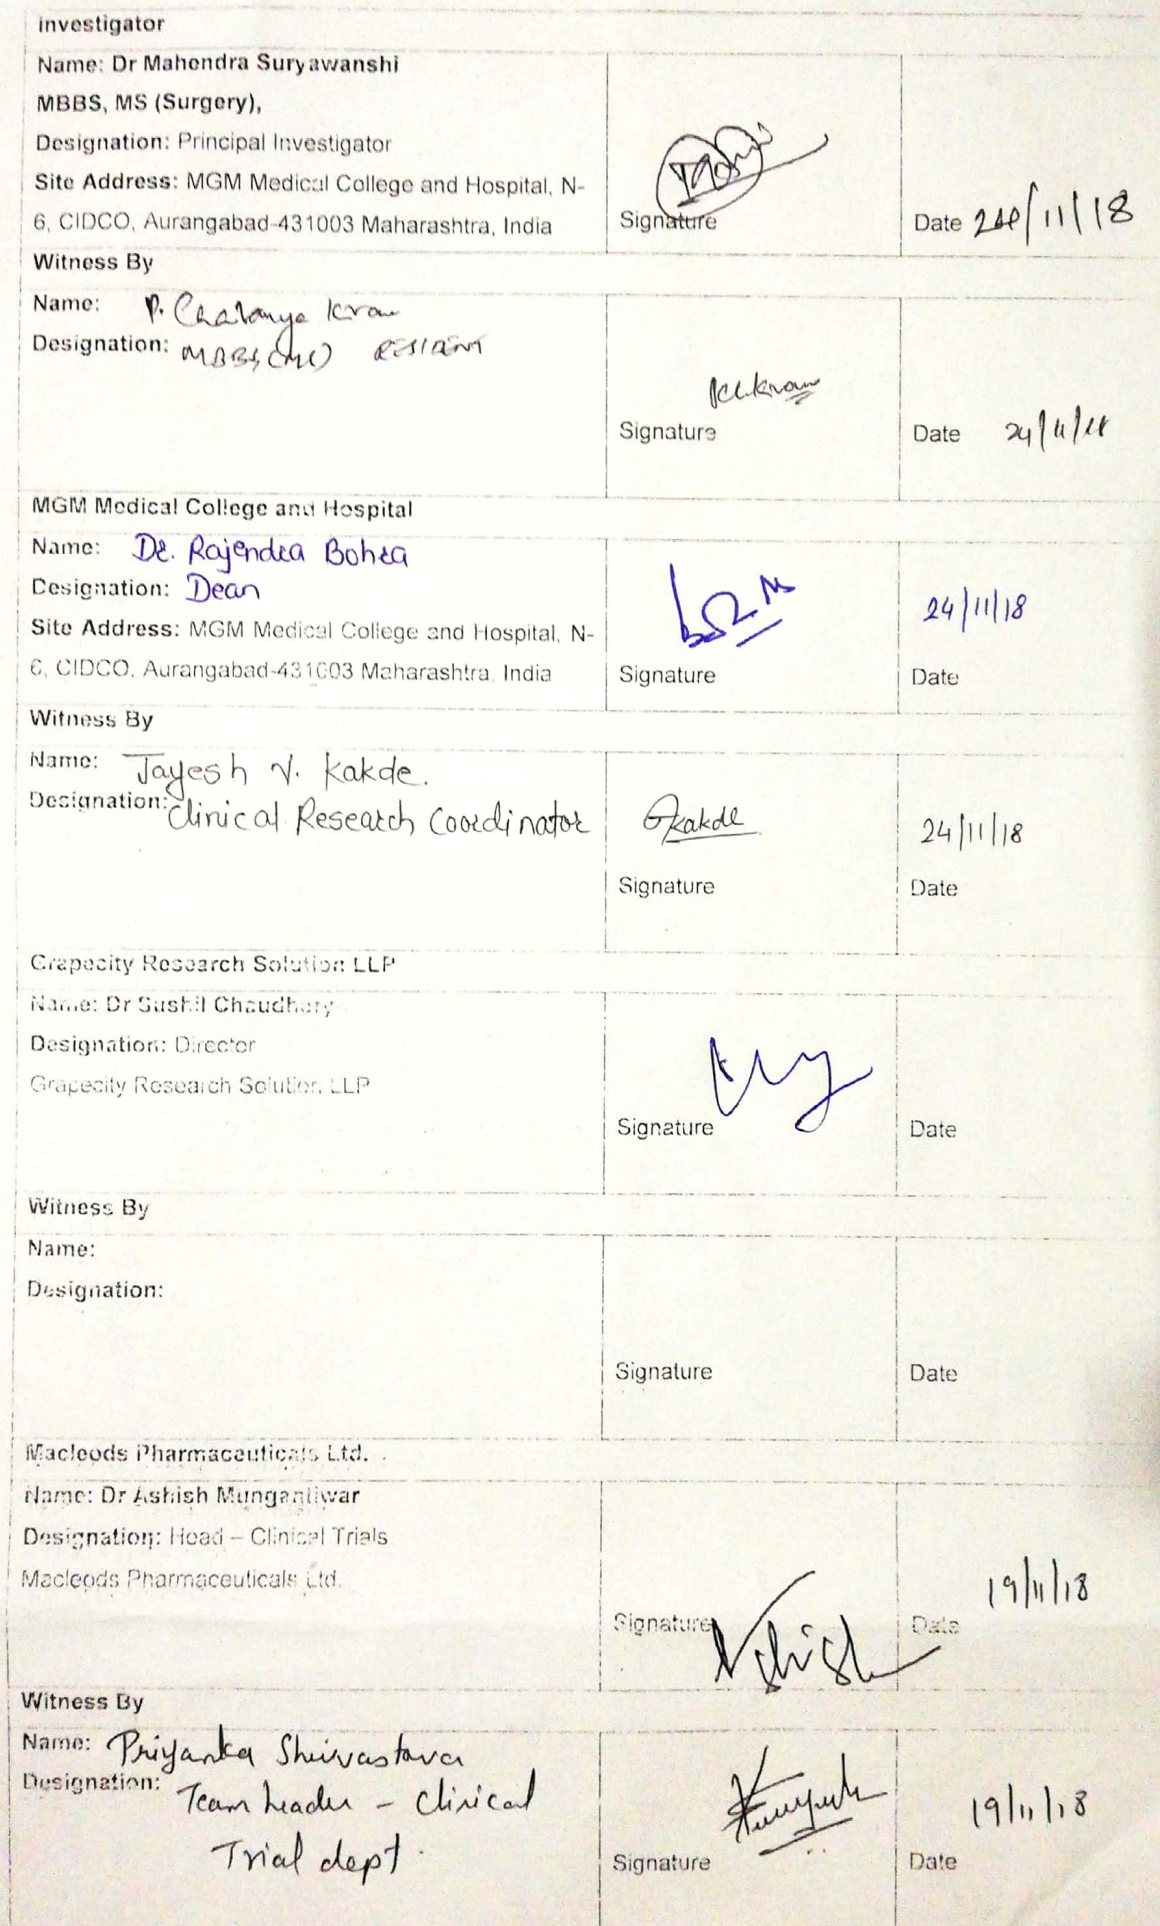 Investigator
Name: Dr Mahendra Suryawanshi
MBBS, MS (Surgery),
Designation: Principal Investigator
Site Address: MGM Medical College and Hospital, N-
6, CIDCO, Aurangabad-431003 Maharashtra, India
Signature
Date 24/11/18
Witness By
Name: P. Chaitanya Kiran
Designation: MBBS, RESIDENT
Signature
Date 24/11/18
MGM Medical College and Hospital
Name: Dr. Rajendra Bohra
Designation: Dean
Site Address: MGM Medical College and Hospital, N-
6, CIDCO, Aurangabad-431003 Maharashtra, India
Signature
24/11/18
Date
Witness By
Name: Jayesh V. Kakde.
Designation: Clinical Research Coordinator
Kakde
Signature
24/11/18
Date
Grapecity Research Solution LLP
Name: Dr Sushil Chaudhary
Designation: Director
Grapecity Research Solution LLP
Signature
Date
Witness By
Name:
Designation:
Signature
Date
Macleods Pharmaceuticals Ltd.
Name: Dr Ashish Mungantiwar
Designation: Head – Clinical Trials
Macleods Pharmaceuticals Ltd.
Signature
Ashish
19/11/18
Date
Witness By
Name: Priyanka Shrivastava
Designation: Team Leader - Clinical
Trial dept.
Signature
19/11/18
Date